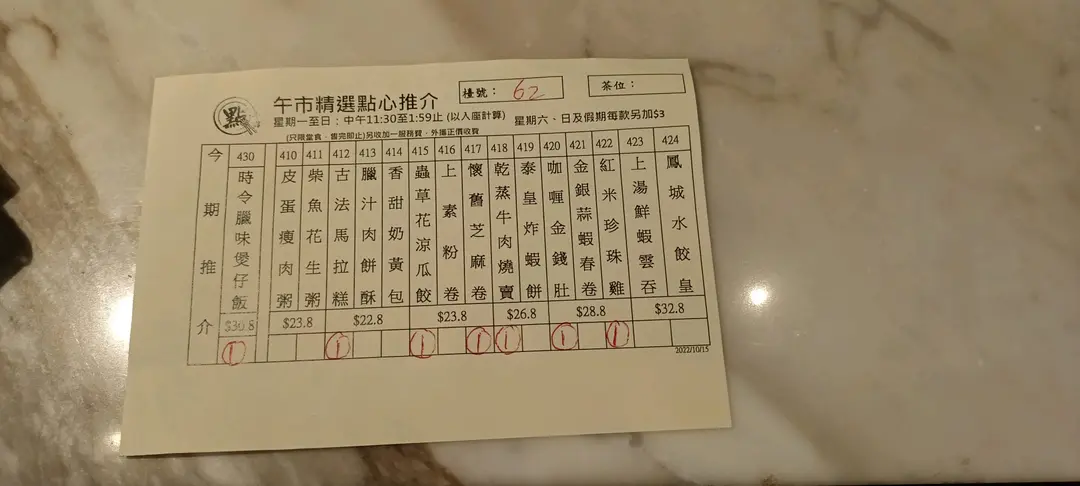 點
午市精選點心推介
檯號： 62
茶位：
星期一至日：中午11:30至1:59止 (以入座計算) 星期六、日及假期每款另加$3
(只限堂食，售完即止)另收加一服務費，外攜正價收費
今期推介
430 410 411 412 413 414 415 416 417 418 419 420 421 422 423 424
時令臘味煲仔飯
皮蛋瘦肉粥
柴魚花生粥
古法馬拉糕
臘汁肉餅酥
香甜奶黃包
蟲草花涼瓜餃
上素粉卷
懷舊芝麻卷
乾蒸牛肉燒賣
泰皇炸蝦餅
咖喱金錢肚
金銀蒜蝦春卷
紅米珍珠雞
上湯鮮蝦雲吞
鳳城水餃皇
$30.8 $23.8 $22.8 $23.8 $26.8 $28.8 $32.8
① ① ① ① ① ① ①
2022/10/15